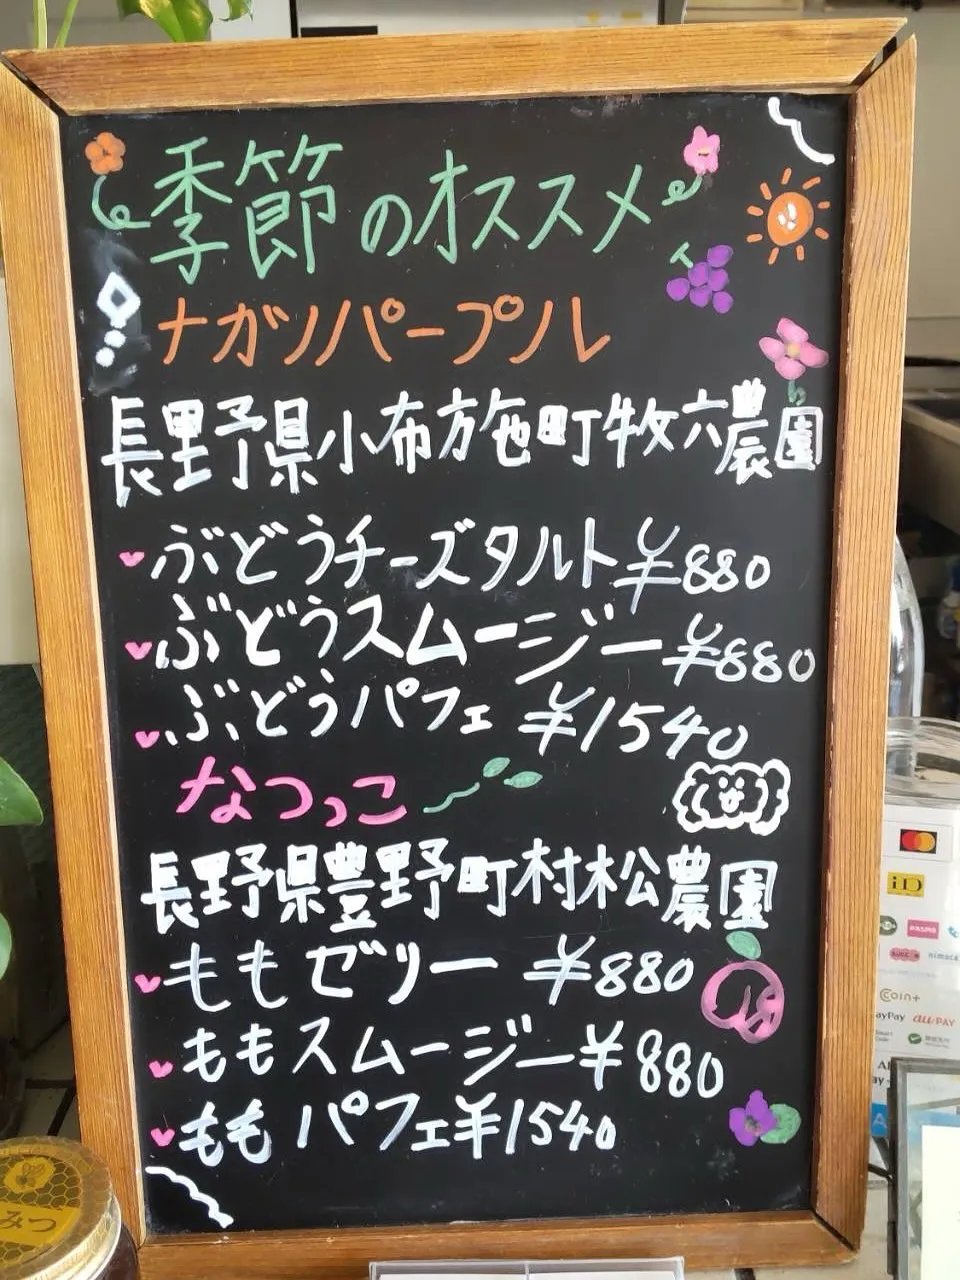 季節のオススメ
ナガノパープル
長野県小布施町牧六農園
ぶどうチーズタルト¥880
ぶどうスムージー¥880
ぶどうパフェ ¥1540
なつっこ
長野県豊野町村松農園
ももゼリー ¥880
ももスムージー¥880
ももパフェ¥1540
みつ
iD
PASMO
nimoca
Coin+
ayPay
au PAY